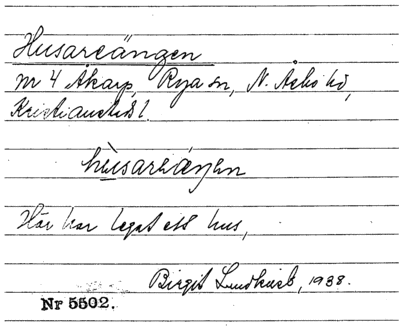 Husareängen
nr 4 Åkarp, Rya sn, N. Åsbo hd,
Kristianst. l.
husareängen
Här har legat ett hus,
Birgit Lundkvist, 1938.
Nr 5502.